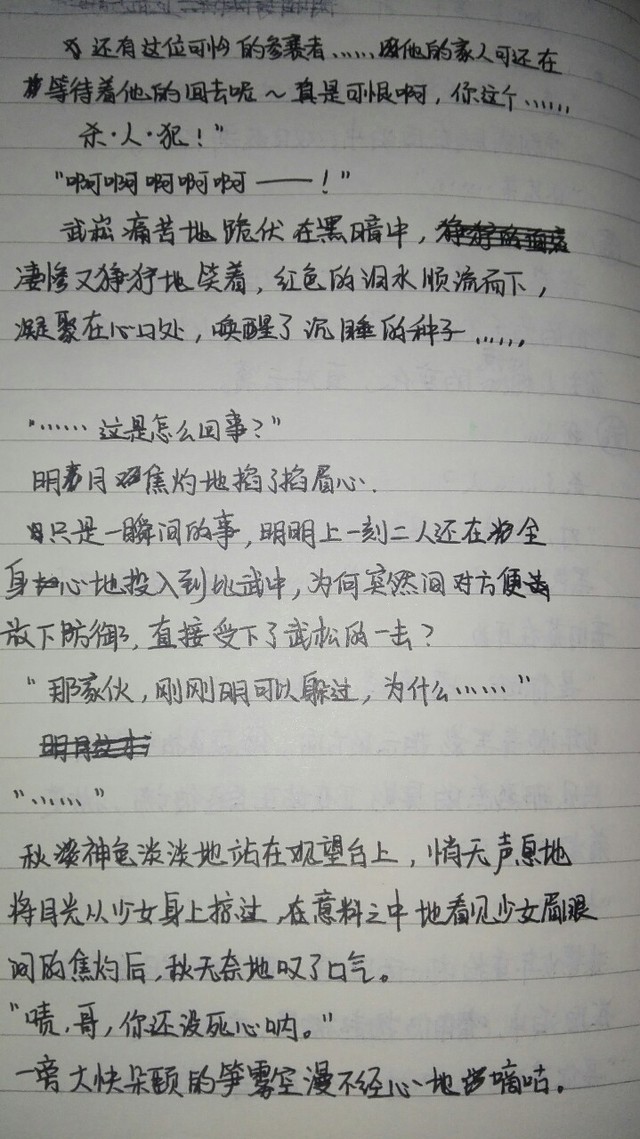 还有这位可怜的参赛者……他的家人可还在
等待着他的回去呢~真是可恨啊，你这个……
杀·人·犯！"
"啊啊啊啊啊——！"
武崧痛苦地跪伏在黑暗中，
凄惨又狰狞地笑着，红色的泪水顺流而下，
凝聚在心口处，唤醒了沉睡的种子……
"……这是怎么回事？"
明月焦灼地掐了掐眉心.
只是一瞬间的事，明明上一刻二人还在全
身心地投入到比武中，为何突然间对方便
放下防御，直接受下了武松的一击？
"那家伙，刚刚明可以躲过，为什么……"
"……"
秋神色淡淡地站在观望台上，悄无声息地
将目光从少女身上掠过，在意料之中地看见少女眉眼
间的焦灼后，秋无奈地叹了口气。
"啧，哥，你还没死心呐。"
一旁大快朵颐的笋雾空漫不经心地嘀咕。